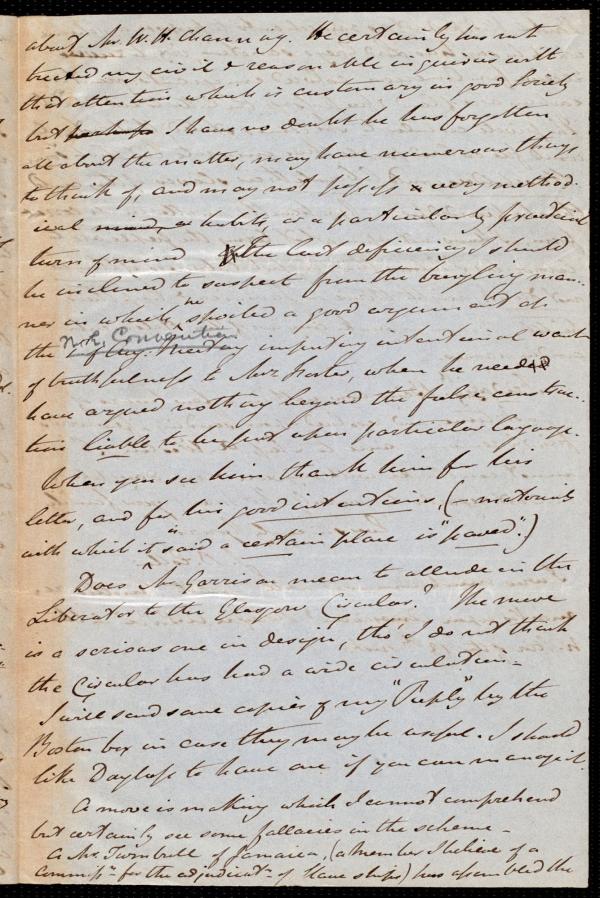 about Mr. W. H. Channing. He certainly has not
treated my civil & reasonable inquiries with
that attention which is customary in good Society
but perhaps I have no doubt he has forgotten
all about the matter, may have numerous things
to think of, and may not possess a very method-
ical mind, or habits, or a particularly practical
turn of mind The last deficiency I should
be inclined to suspect from the bungling man-
ner in which he spoiled a good argument at
the N.E. Convention by imputing intentional want
of truthfulness to Mrs Foster, when he need
have argued nothing beyond the false construc-
tion liable to be put upon particular language.
When you see him thank him for his
letter, and for his good intentions, (- materials
with which it "is said a certain place is "paved".)
Does Mr Garrison mean to allude in the
Liberator to the Glasgow Circular? The move
is a serious one in design, tho' I do not think
the Circular has had a wide circulation -
I will send some copies of my "Reply" by the
Boston box in case they may be useful. I should
like Douglass to have one if you can manage it.
A move is making which I cannot comprehend
but certainly see some fallacies in the scheme -
A Mr. Turnbull of Jamaica, (a member I believe of a
Commissn. for the adjudicatn. of Slave ships) has assembled the